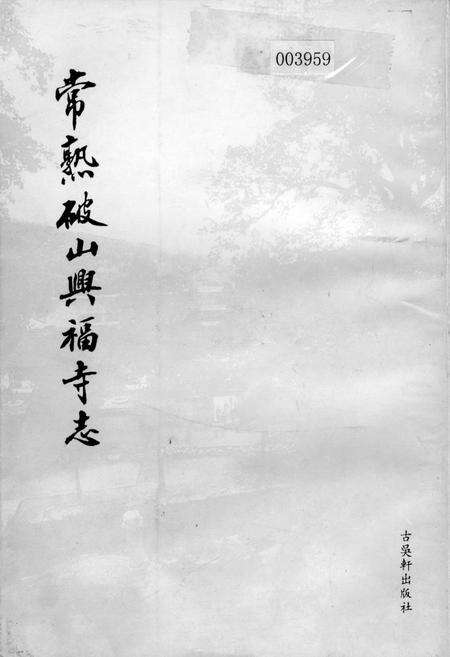 003959
常熟破山興福寺志
古吳軒出版社